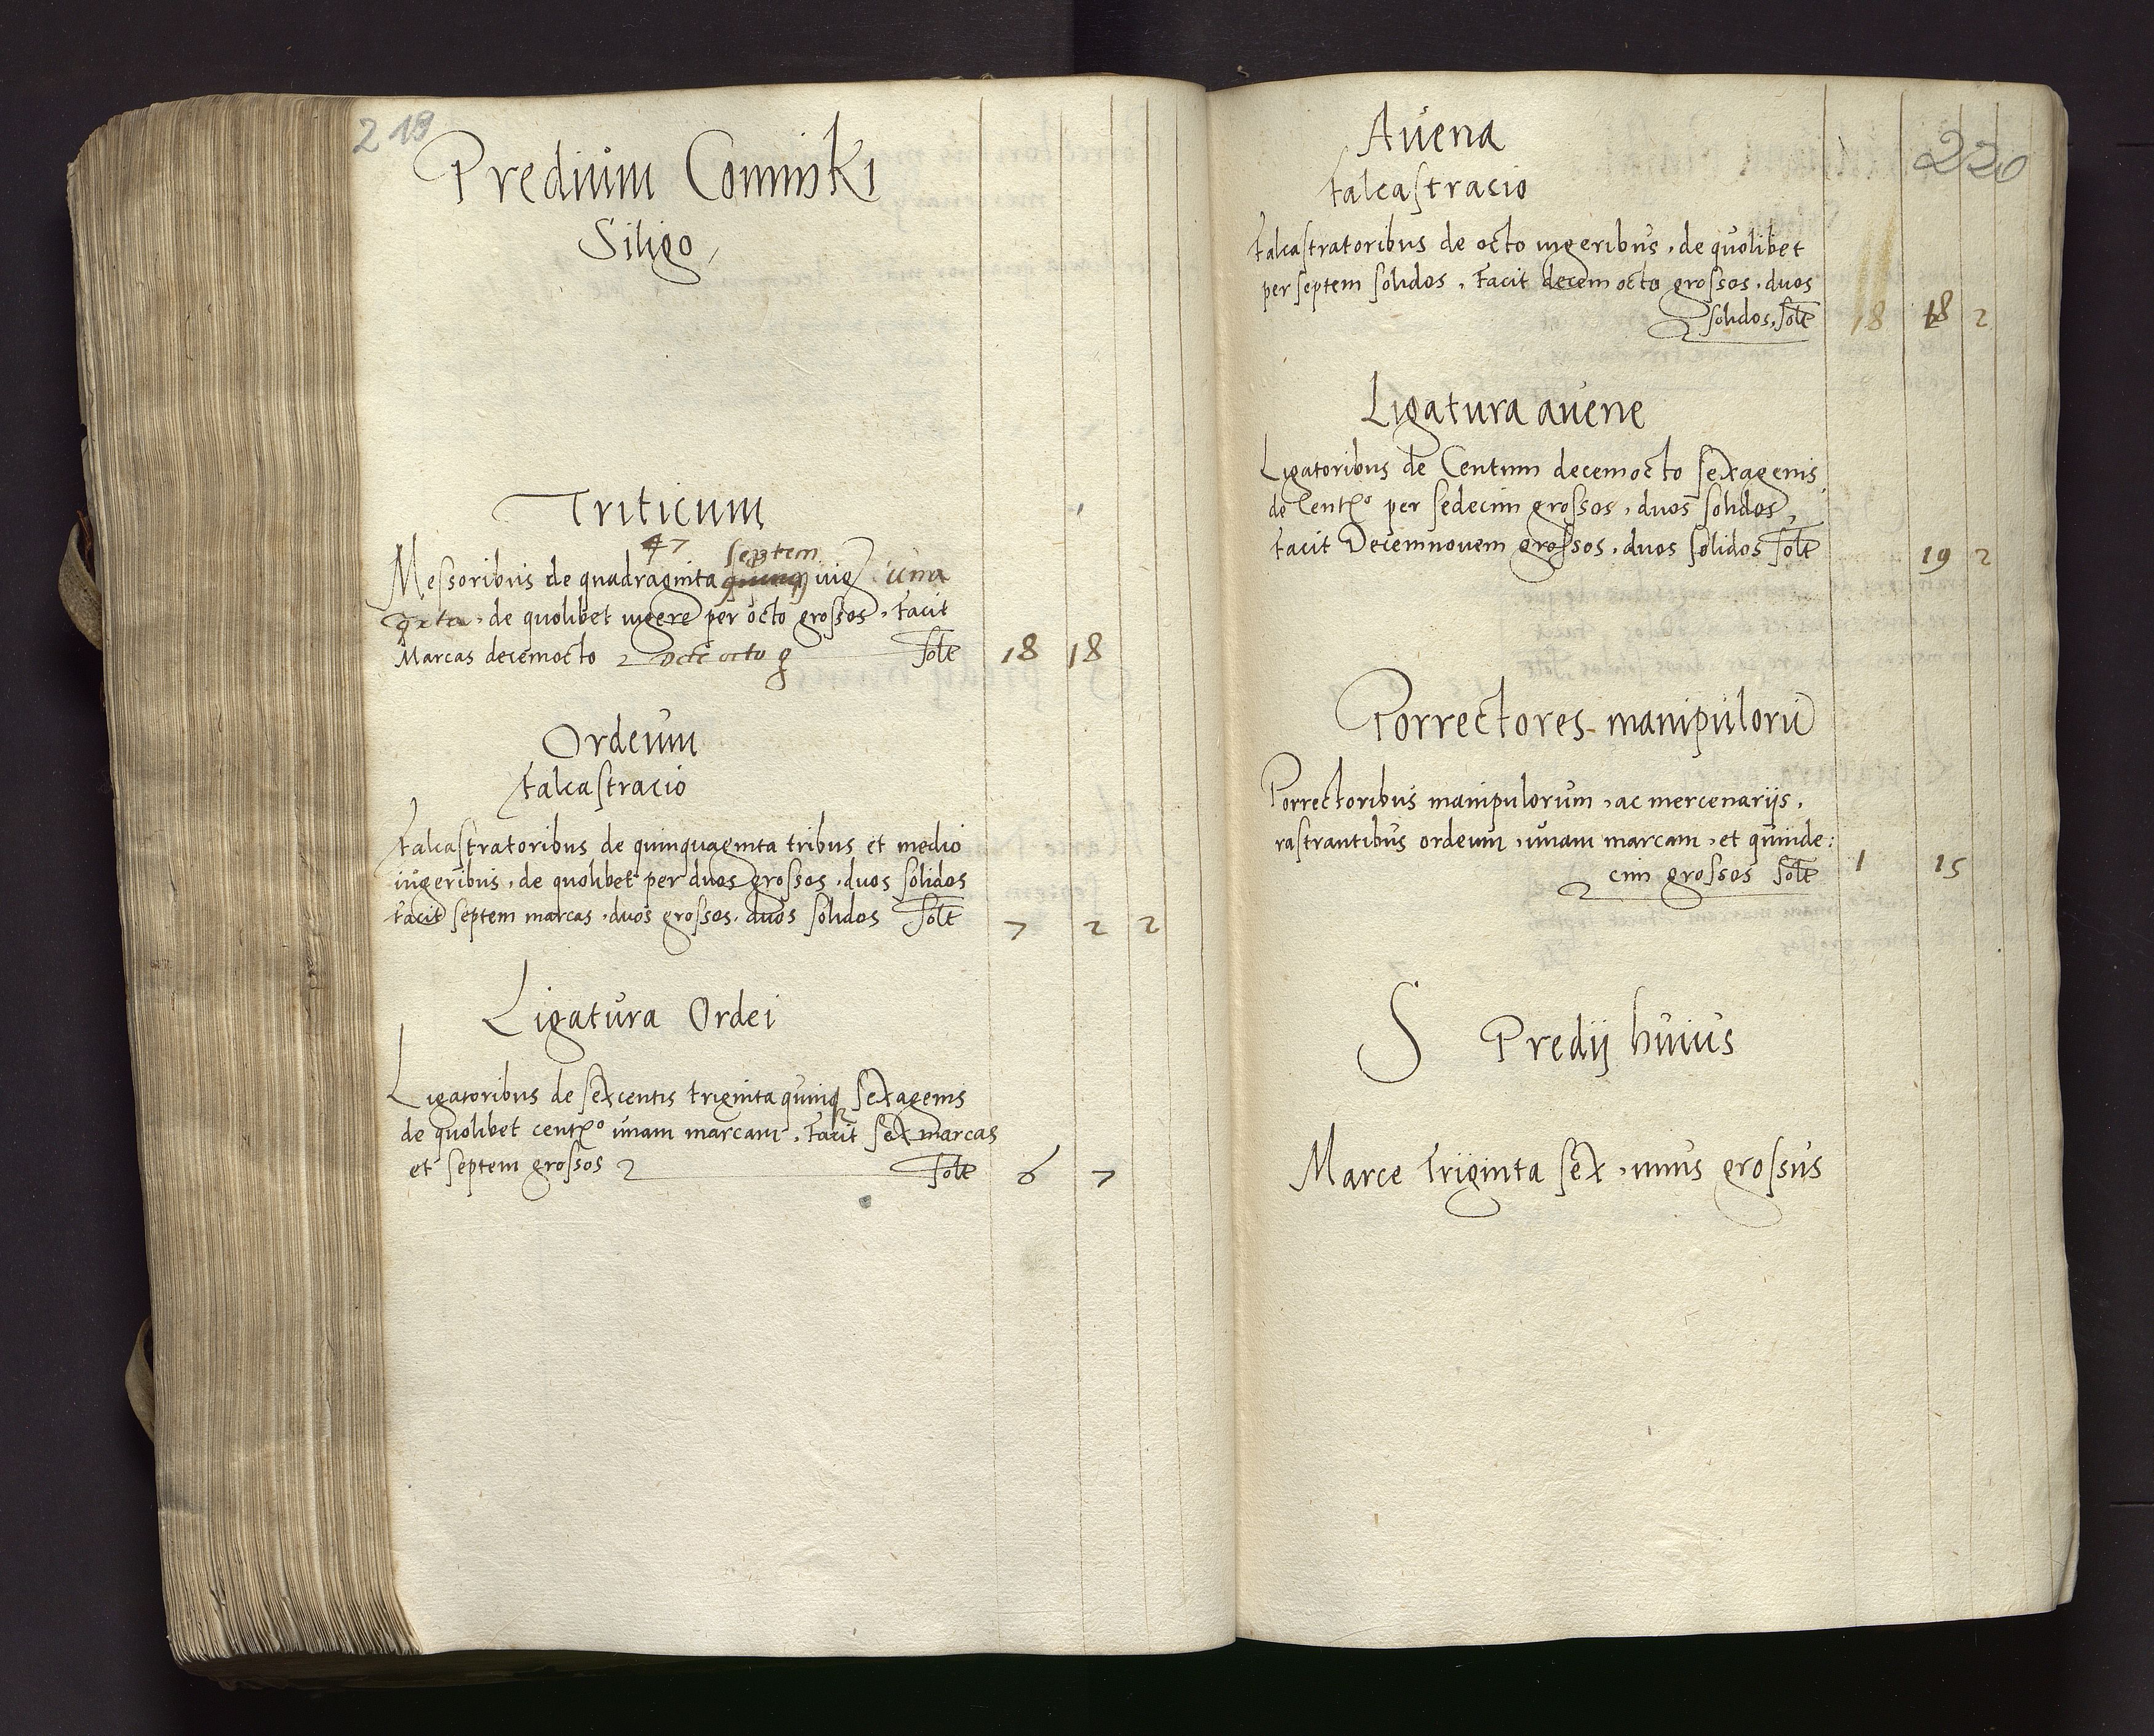 219
Predium Cominski
Siligo
Triticum
47 septem
Messoribus de quadraginta quinq iug una
qrta, de quolibet iugere per octo grossos, facit
Marcas decemocto Dece octo g Solt 18 18
Ordeum
falcastracio
falcastratoribus de quinquaginta tribus et medio
iugeribus, de quolibet per duos grossos, duos solidos
facit septem marcas, duos grossos, duos solidos Solt 7 2 2
Ligatura Ordei
Ligatoribus de sexcentis triginta quinq sexagenis
de quolibet centro unam marcam, facit sex marcas
et septem grossos Solt 6 7
220
Avena
falcastracio
falcastratoribus de octo iugeribus, de quolibet
per septem solidos, facit decem octo grossos, duos
solidos, Solt 18 18 2
Ligatura avene
Ligatoribus de Centum decemocto sexagenis
de Centro per sedecim grossos, duos solidos,
facit Decemnovem grossos, duos solidos Solt 19 2
Porrectores manipulorū
Porrectoribus manipulorum, ac mercenarijs,
rastrantibus ordeum, unam marcam, et quinde:
cim grossos Solt 1 15
S Predij huius
Marce Triginta sex, unus grossus